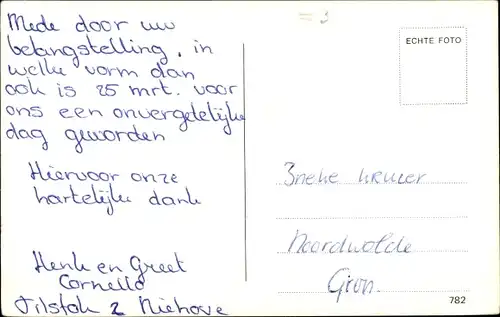 Mede door uw
belangstelling, in
welke vorm dan
ook is 25 mrt. voor
ons een onvergetelijke
dag geworden
Hiervoor onze
hartelijke dank
Henk en Greet
Cornello
Tilstok 2 Niehove
= 3
ECHTE FOTO
Noordwolde
Gron.
782